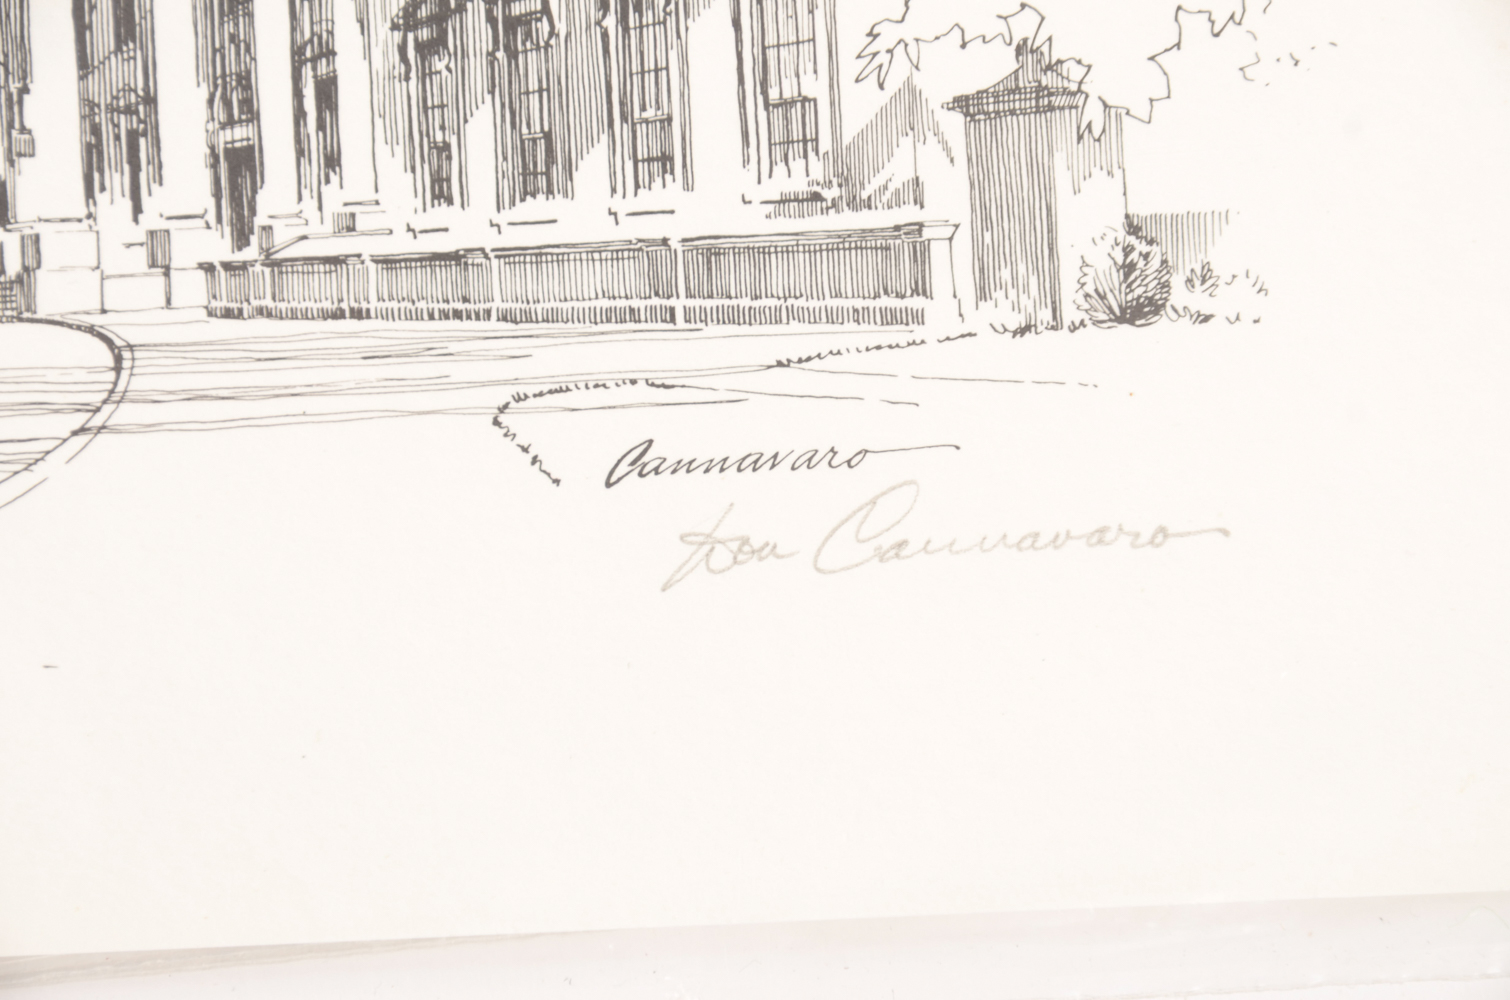 Cannavaro
Don Cannavaro